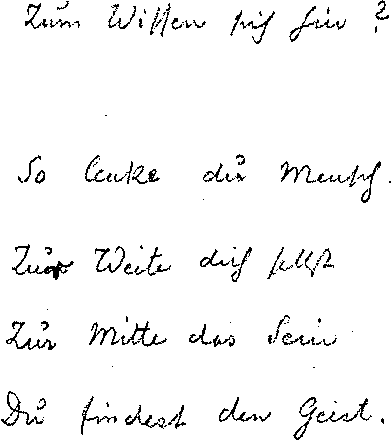 Zum Wissen sich für?
So lenke du Mensch.
Zur Weite dich selbst
Zur Mitte das Sein
Du findest den Geist.